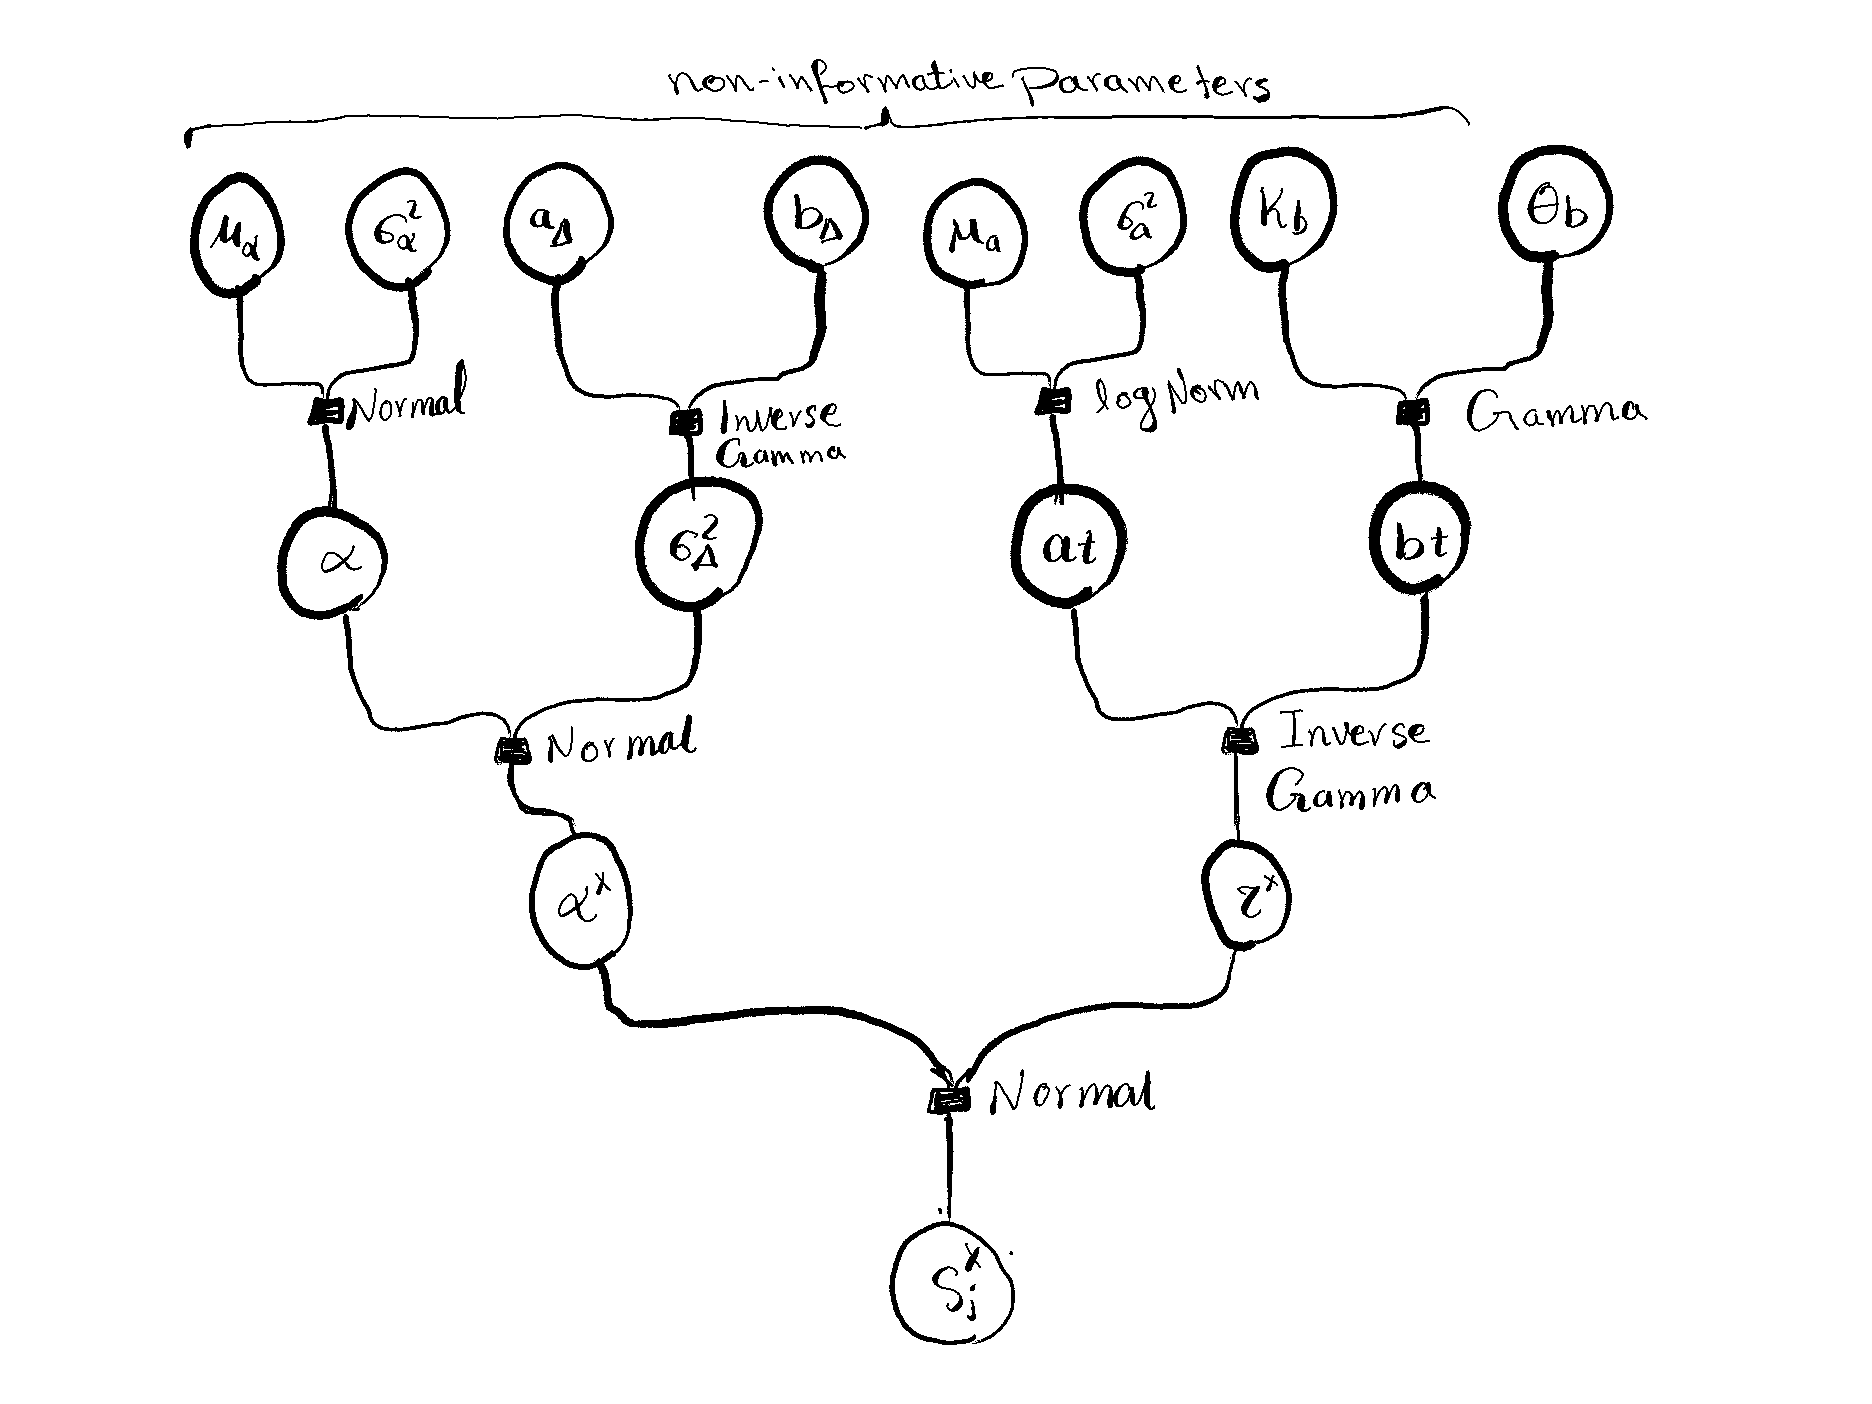 non-informative parameters
μα σ²α aΔ bΔ μa σ²a Kb θb
Normal Inverse Gamma logNorm Gamma
α σ²Δ at bt
Normal Inverse Gamma
αˣ τˣ
Normal
Sⱼˣ